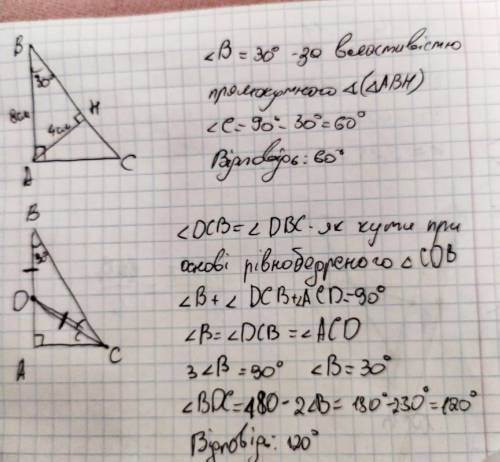 B
30°
8см
H
4см
A
C
∠B = 30° - за властивістю
прямокутного △(△ABH)
∠C = 90° - 30° = 60°
Відповідь: 60°
B
30°
D
A
C
∠DCB = ∠DBC - як кути при
основі рівнобедреного △COB
∠B + ∠DCB + ∠ACD = 90°
∠B = ∠DCB = ∠ACD
3∠B = 90° ∠B = 30°
∠BDC = 180 - 2∠B = 180° - 230° = 120°
Відповідь: 120°